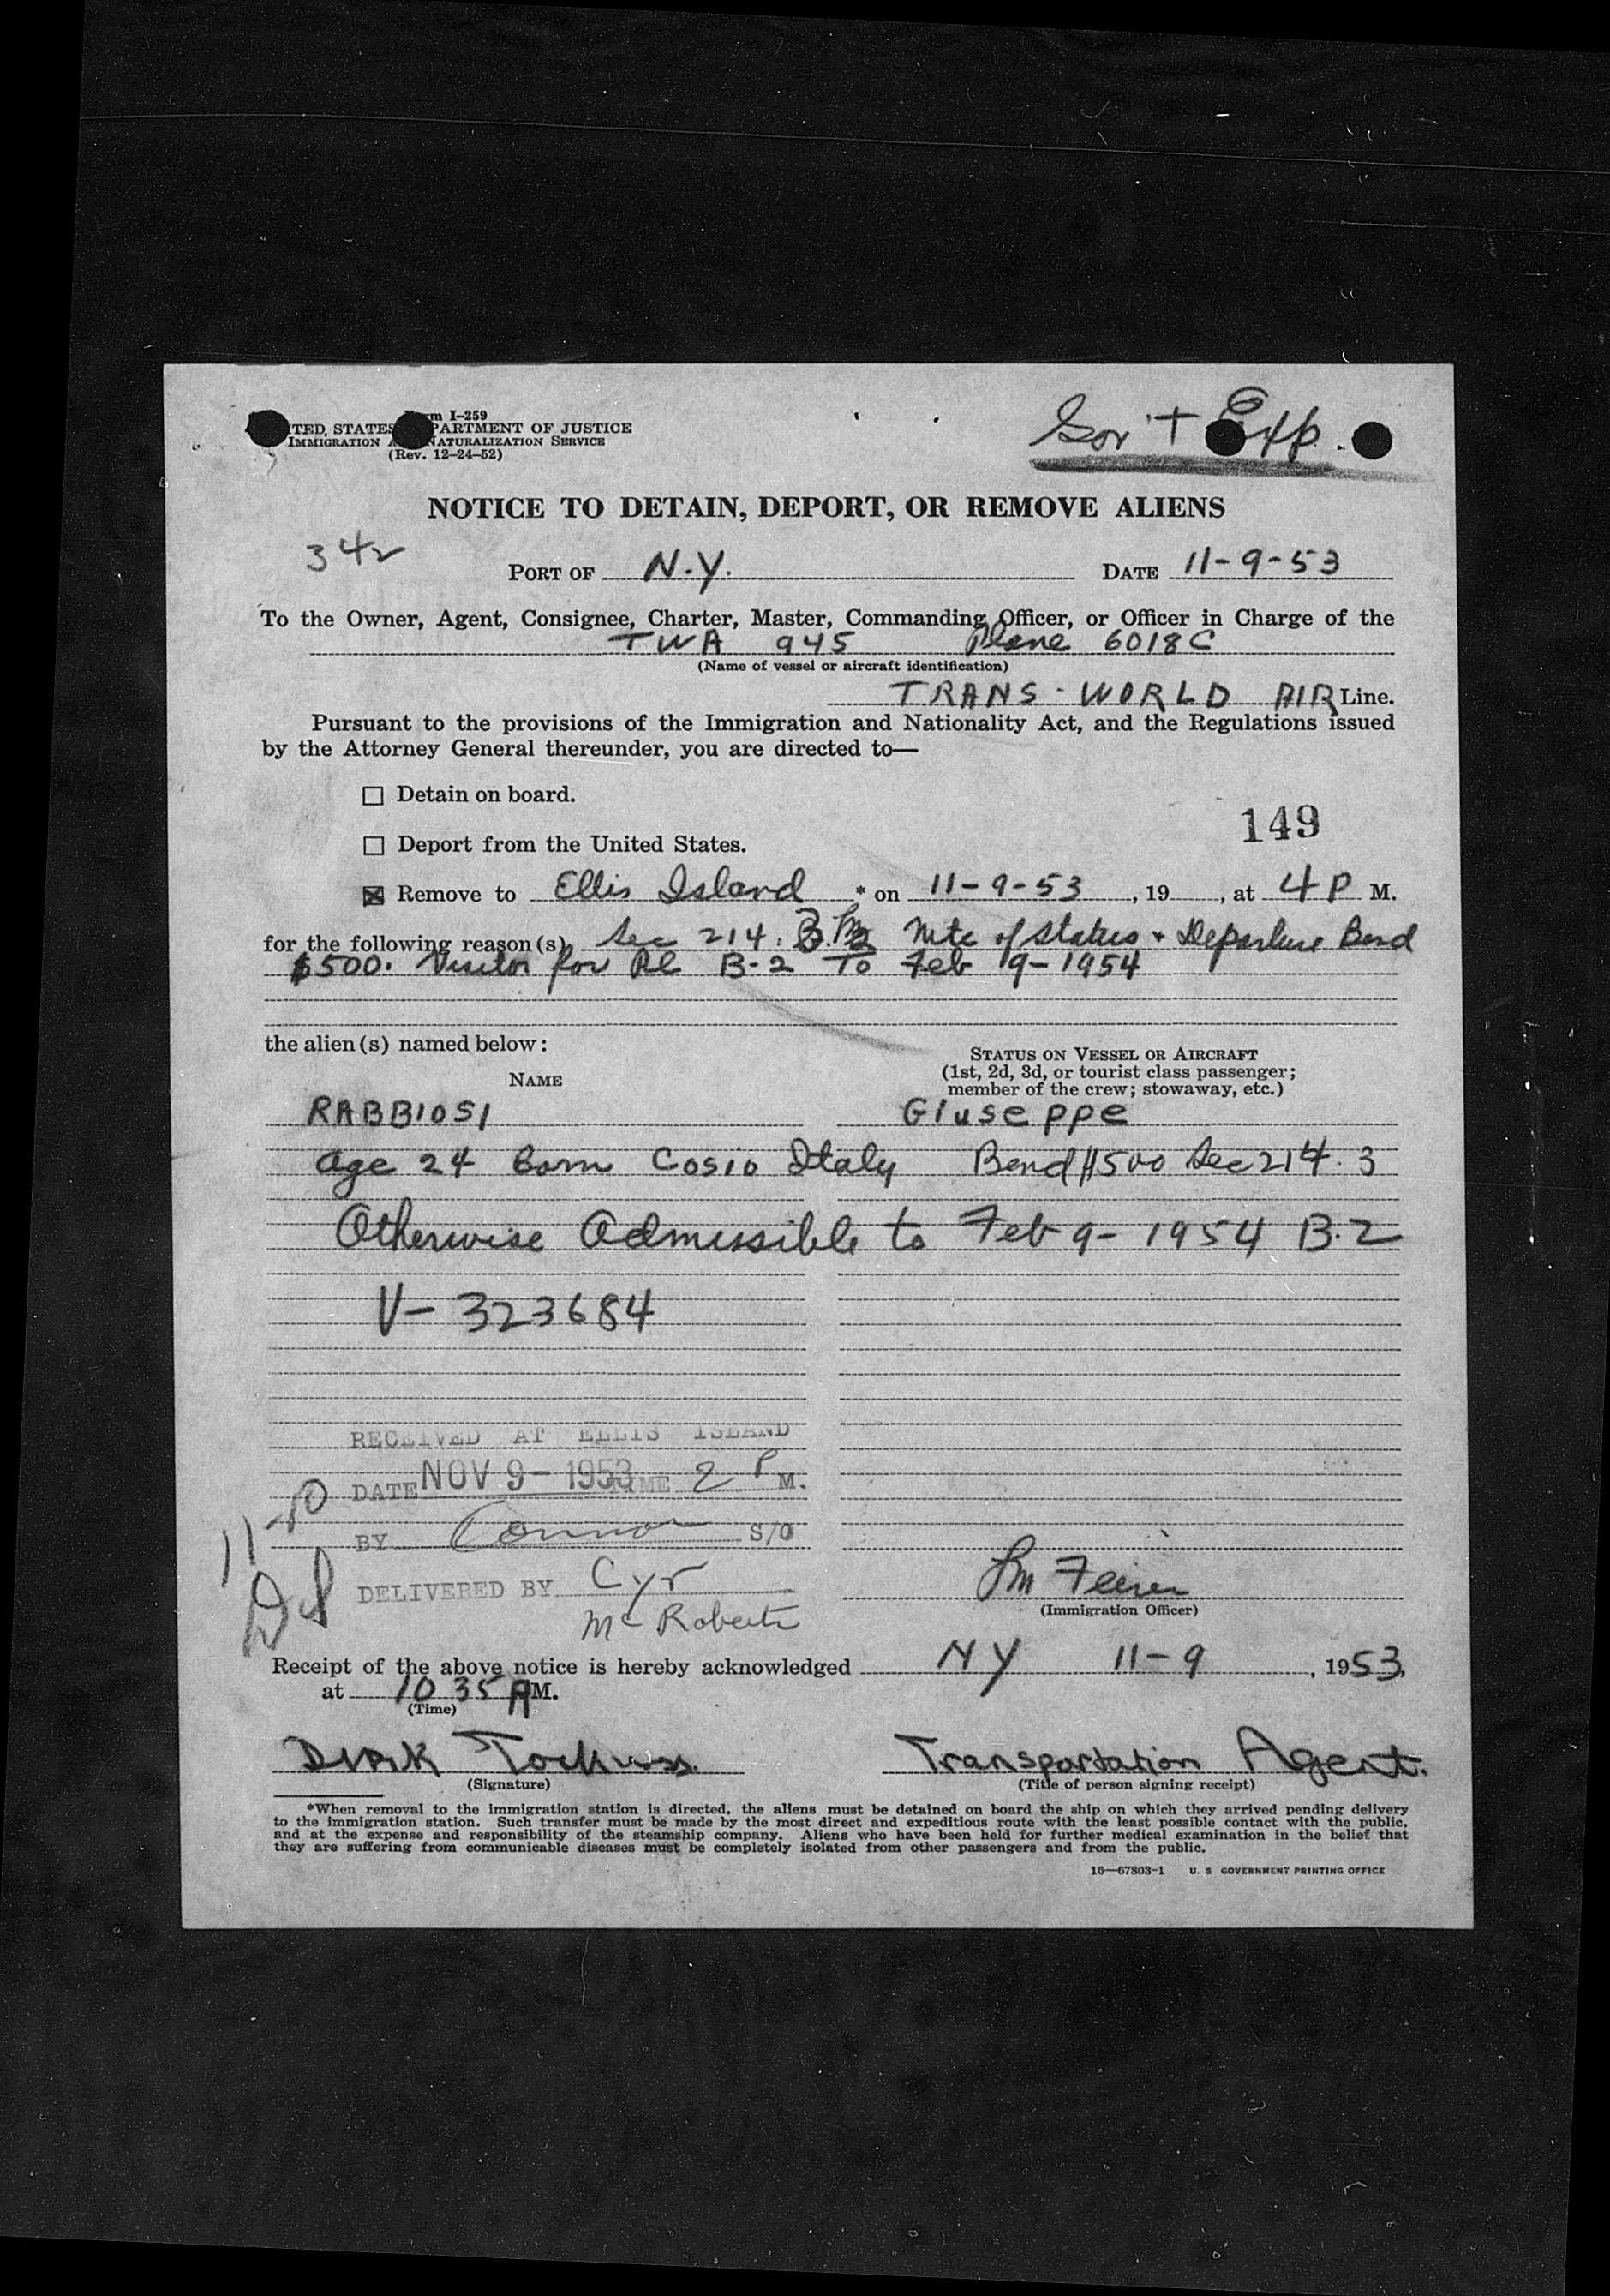 Form I-259
UNITED STATES DEPARTMENT OF JUSTICE
IMMIGRATION AND NATURALIZATION SERVICE
(Rev. 12-24-52)
Gov't Exp.
NOTICE TO DETAIN, DEPORT, OR REMOVE ALIENS
342
PORT OF N.Y. DATE 11-9-53
To the Owner, Agent, Consignee, Charter, Master, Commanding Officer, or Officer in Charge of the
TWA 945 Plane 6018C
(Name of vessel or aircraft identification)
TRANS-WORLD AIR Line.
Pursuant to the provisions of the Immigration and Nationality Act, and the Regulations issued
by the Attorney General thereunder, you are directed to—
☐ Detain on board.
149
☐ Deport from the United States.
☒ Remove to Ellis Island * on 11-9-53, 19 , at 4 P M.
for the following reason(s) Sec 214. of Status + Departure Bond
$500. Visitor for Pl B-2 To Feb 9-1954
the alien(s) named below:
NAME
STATUS ON VESSEL OR AIRCRAFT
(1st, 2d, 3d, or tourist class passenger;
member of the crew; stowaway, etc.)
RABBIOSI GIUSEPPE
age 24 Born Cosio Italy Bond $500 Sec 214.3
Otherwise Admissible to Feb 9-1954 B.2
V-323684
RECEIVED AT ELLIS ISLAND
DATE NOV 9-1953 TIME 2 P M.
BY Connor S/O
11-10
DELIVERED BY Cyr
McRoberts
(Immigration Officer)
Receipt of the above notice is hereby acknowledged NY 11-9, 1953,
at 10 35 A M.
(Time)
Dirk Transportation Agent.
(Signature) (Title of person signing receipt)
*When removal to the immigration station is directed, the aliens must be detained on board the ship on which they arrived pending delivery
to the immigration station. Such transfer must be made by the most direct and expeditious route with the least possible contact with the public,
and at the expense and responsibility of the steamship company. Aliens who have been held for further medical examination in the belief that
they are suffering from communicable diseases must be completely isolated from other passengers and from the public.
16—67803-1 U. S GOVERNMENT PRINTING OFFICE